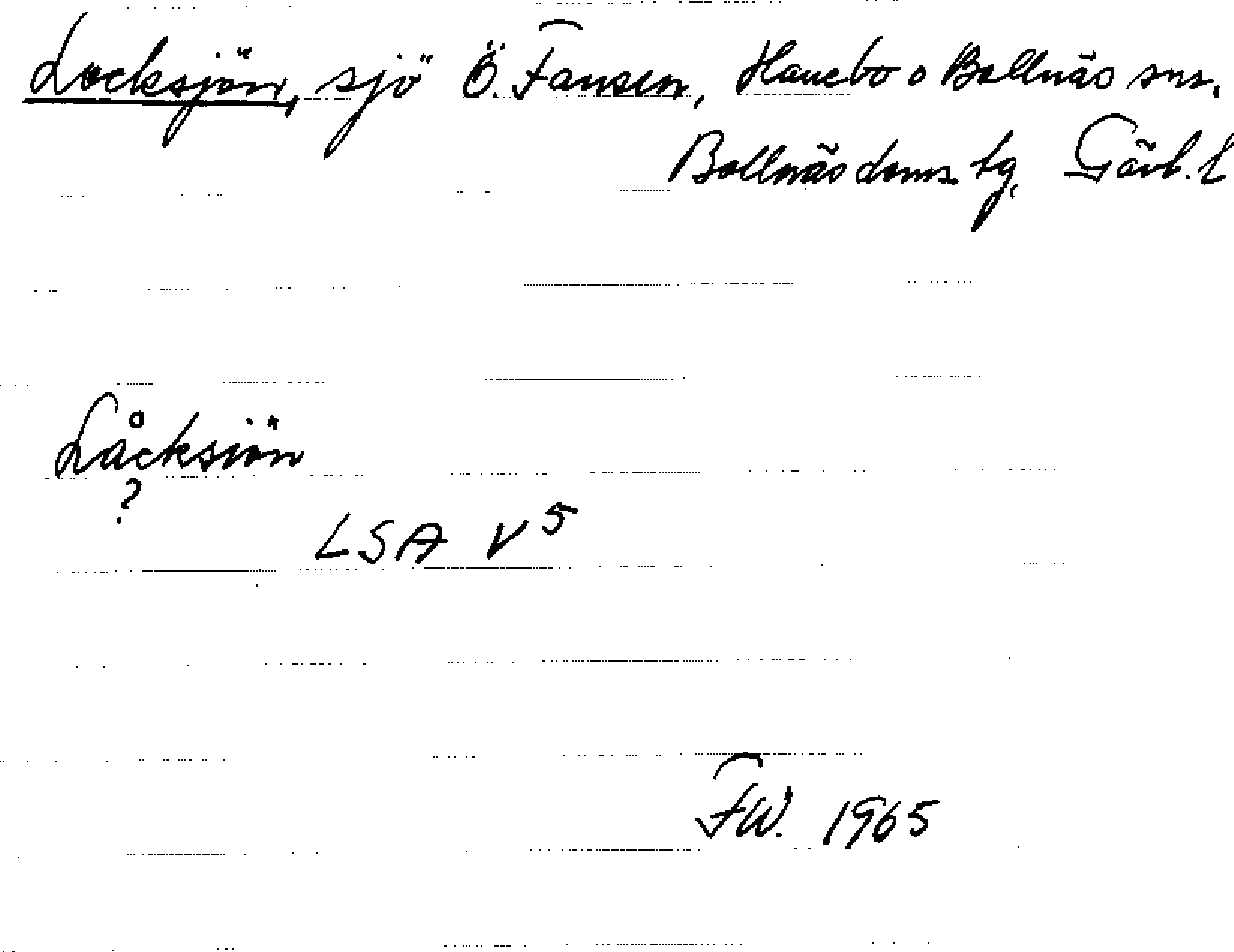 Locksjön, sjö Ö. Fansen, Hanebo o Bollnäs snr.
Bollnäs doms. tg, Gävl. l
Låcksiön
?
LSA V5
FW. 1965